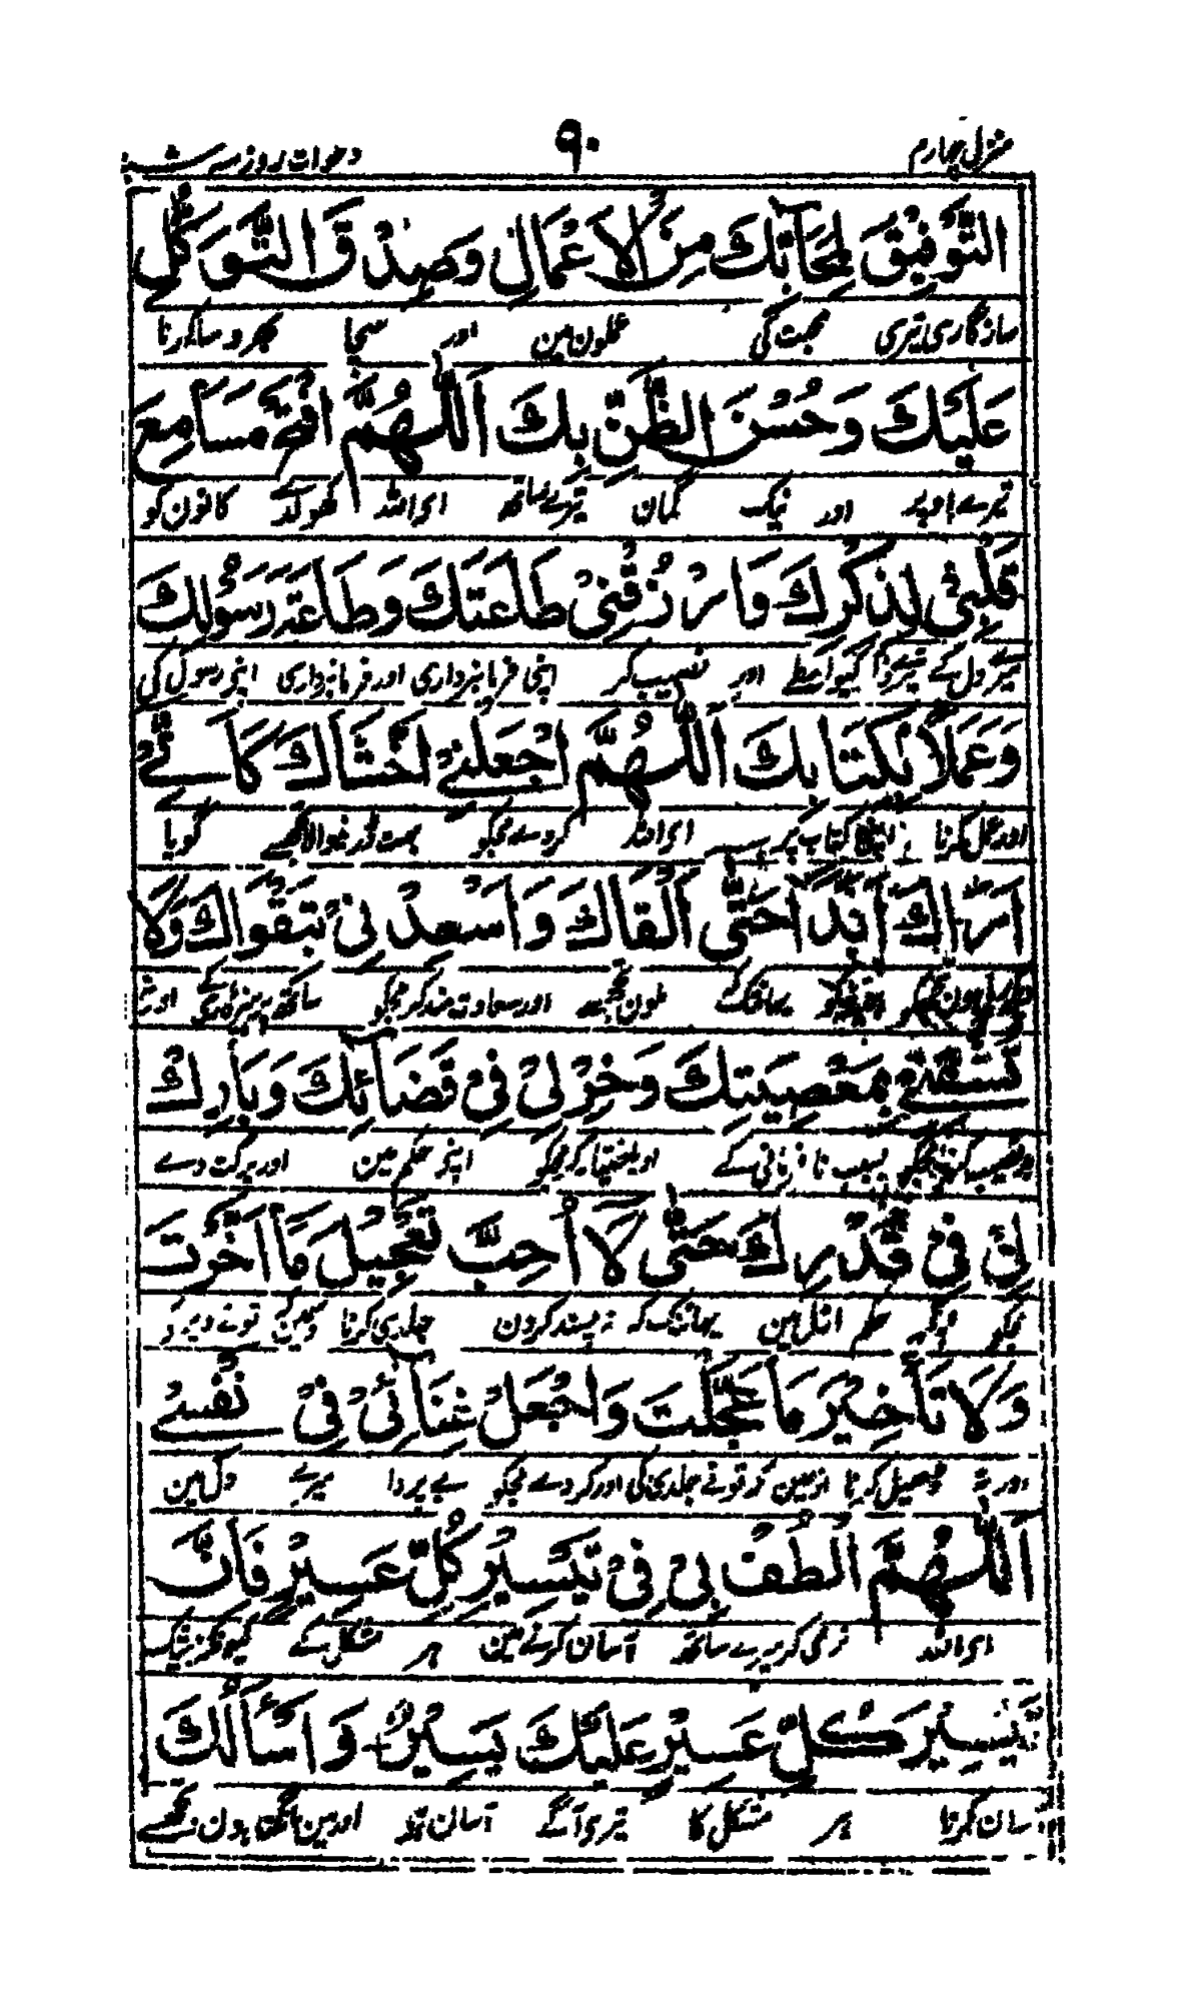 منزل چہارم ۹۰ دعوات روز سہ شنبہ
التَّوْفِيْقَ لِمَحَآبِّكَ مِنَ الْاَعْمَالِ وَصِدْقَ التَّوَكُّلِ
سازگاری تیری محبت کی عملون مین اور سچا بھروسا کرنا
عَلَيْكَ وَحُسْنَ الظَّنِّ بِكَ اَللّٰهُمَّ افْتَحْ مَسَامِعَ
تیرے اوپر اور نیک گمان تیرے ساتھ ای اللہ کھولدے کانون کو
قَلْبِيْ لِذِكْرِكَ وَارْزُقْنِيْ طَاعَتَكَ وَطَاعَةَ رَسُوْلِكَ
میرے دل کے اور نصیب کر اپنی فرمانبرداری اور فرمانبرداری اپنے رسول کی
وَعَمَلًا بِكِتَابِكَ اَللّٰهُمَّ اجْعَلْنِيْ اَخْشَاكَ كَاَنِّيْ
اور عمل کرنا اپنی کتاب پر ای اللہ کر دے مجکو بہت گویا
اَرَاكَ اَبَدًا حَتّٰى اَلْقَاكَ وَاَسْعِدْنِيْ بِتَقْوَاكَ وَلَا
یہانتک ملون تجھسے اور سعادتمند کر مجکو ساتھ پرہیزگاری کے اور نہ
تُشْقِنِيْ بِمَعْصِيَتِكَ وَخِرْ لِيْ فِيْ قَضَآئِكَ وَبَارِكْ
بسبب نافرمانی کے مجکو اپنے حکم مین اور برکت دے
لِيْ فِيْ قَدَرِكَ حَتّٰى لَا اُحِبَّ تَعْجِيْلَ مَا اَخَّرْتَ
مجکو حکم مین یہانتک کہ نہ پسند کرون جلدی کرنا
وَلَا تَأْخِيْرَ مَا عَجَّلْتَ وَاجْعَلْ غِنَآئِيْ فِيْ نَفْسِيْ
اور نہ ڈھیل کرنا تونے جلدی کی اور کر دے مجکو بے پروا میرے دل مین
اَللّٰهُمَّ الْطُفْ بِيْ فِيْ تَيْسِيْرِ كُلِّ عَسِيْرٍ فَاِنَّ
ای اللہ نرمی کر میرے ساتھ آسان کرنے مین ہر مشکل کے کیونکہ بیشک
تَيْسِيْرَ كُلِّ عَسِيْرٍ عَلَيْكَ يَسِيْرٌ وَاَسْأَلُكَ
آسان کرنا ہر مشکل کا تیری آگے آسان ہے اور مین مانگتا ہون تجھسے